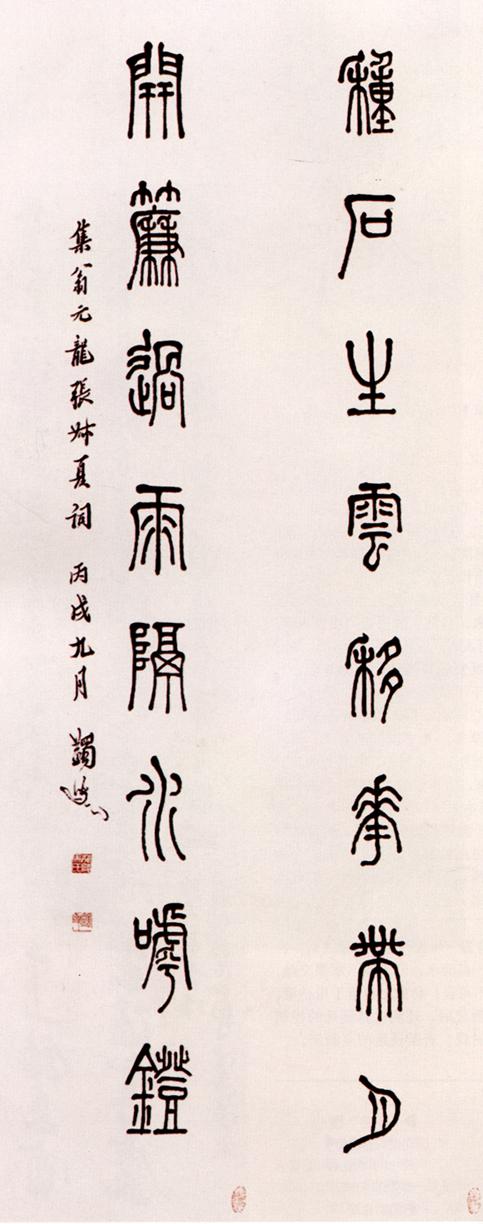 種石生雲移華帶月
開簾過雨隔水嘑鐙
集翁元龍張叔夏詞 丙戌九月 蠲叟